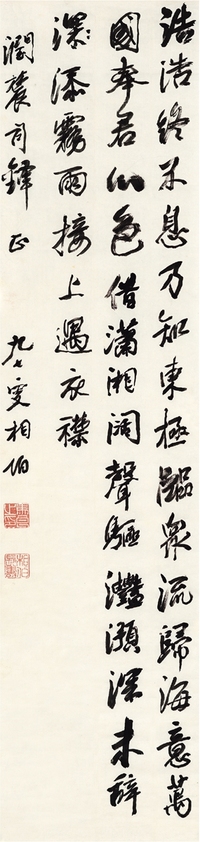 浩浩終不息乃知東極臨眾流歸海意萬
國奉君心色借瀟湘闊聲驅灩澦深未辭
深添霧雨接上遇衣襟
潤農司鐸 正 九七叟相伯